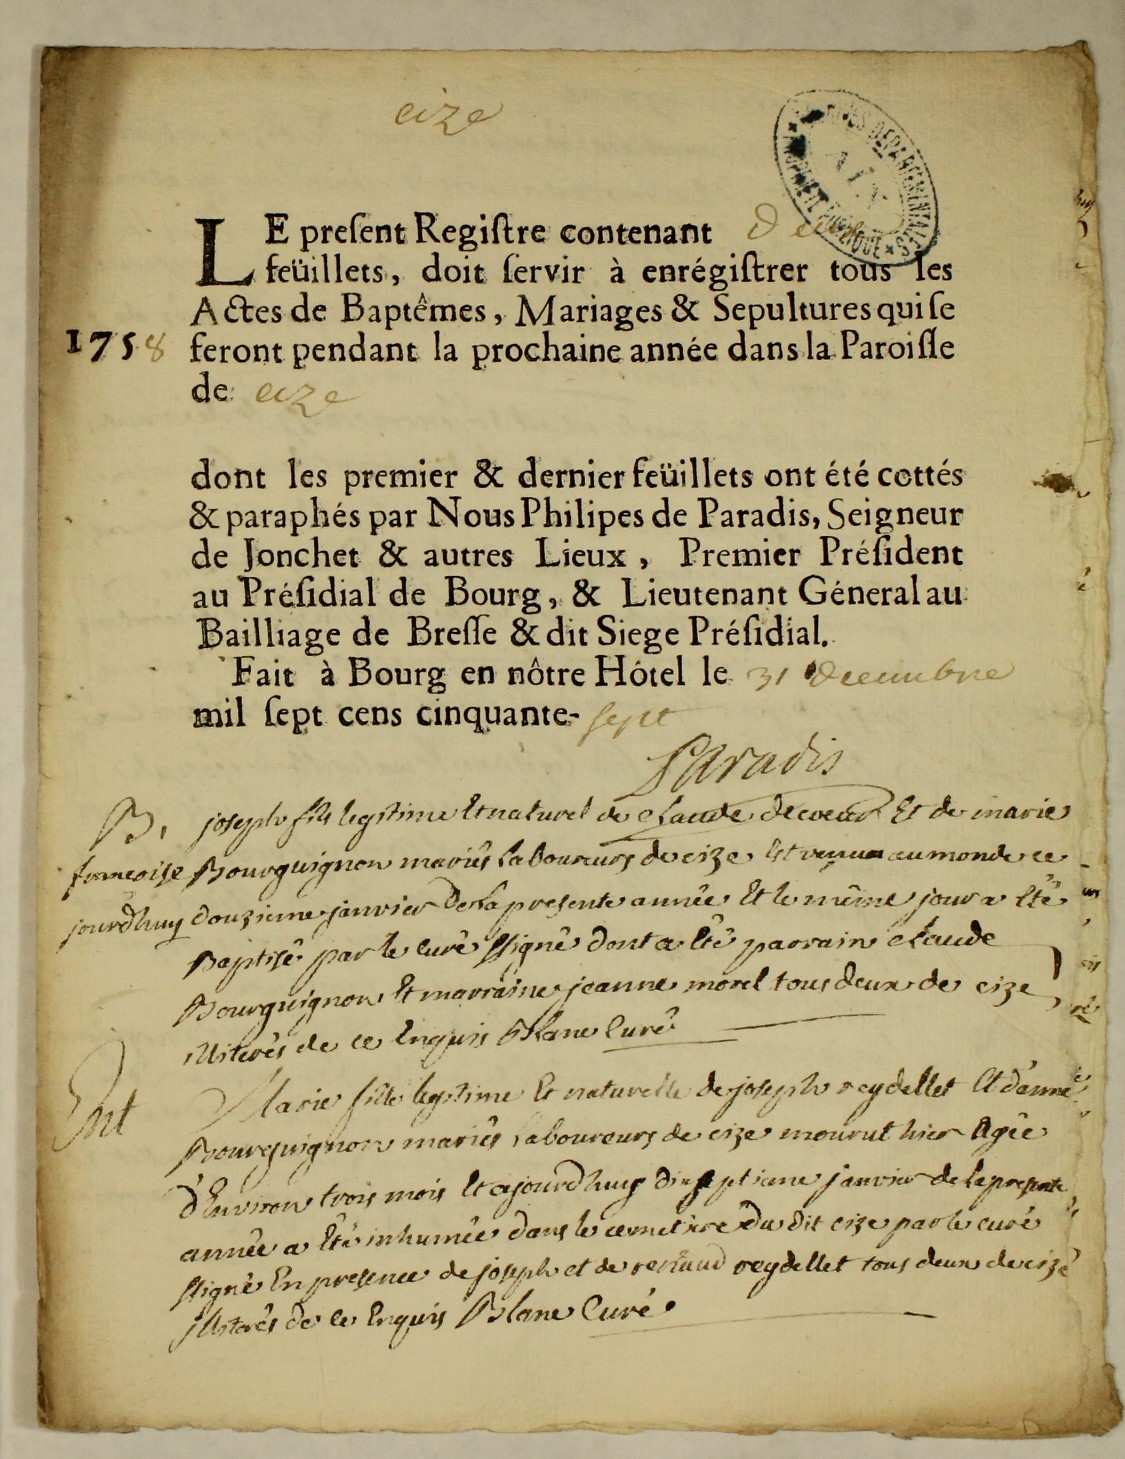 cize
ARCHIVES DEPARTEMENTALES
AIN
LE preſent Regiſtre contenant Deux
feüillets, doit ſervir à enrégiſtrer tous les
Actes de Baptêmes, Mariages & Sepultures qui ſe
1758 feront pendant la prochaine année dans la Paroiſſe
de cize
dont les premier & dernier feüillets ont été cottés
& paraphés par Nous Philipes de Paradis, Seigneur
de Jonchet & autres Lieux, Premier Préſident
au Préſidial de Bourg, & Lieutenant Géneral au
Bailliage de Breſſe & dit Siege Préſidial.
Fait à Bourg en nôtre Hôtel le 31 Decembre
mil ſept cens cinquante-sept
Paradis
B, joseph fils legitime Et naturel de Claude decoeur Et de marie
francoise Bourguignon mariés Laboureurs de cize Est venu au monde ce
jourdhuy douzieme janvier De La presente année Et le même jour a Eté
Baptisé par le curé ssigné dont a Eté parrain Claude
Bourguignon Et marraine jeanne morel tous deux de cize
illiterés de ce Enquis Blanc Curé
Ent Marie fille legitime Et naturelle de joseph reydellet Et d'anne
Bourguignon mariés Laboureurs de cize mourut hier Agée
d'Environ trois mois Et cejourdhuy dixseptieme janvier de la presente
année a Eté inhumée dans le cemetiere du dit cize par le curé
ssigné En presence de joseph et de renaud reydellet tous deux de cize
illiterés de ce Enquis Blanc Curé